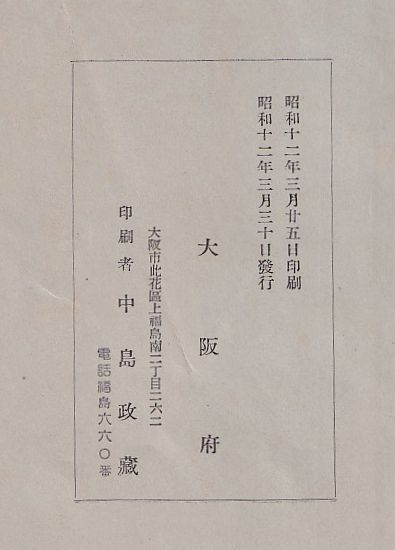 昭和十二年三月廿五日印刷
昭和十二年三月三十日發行
大阪府
大阪市此花區上福島南二丁目二六二
印刷者 中島政藏
電話福島六六〇番